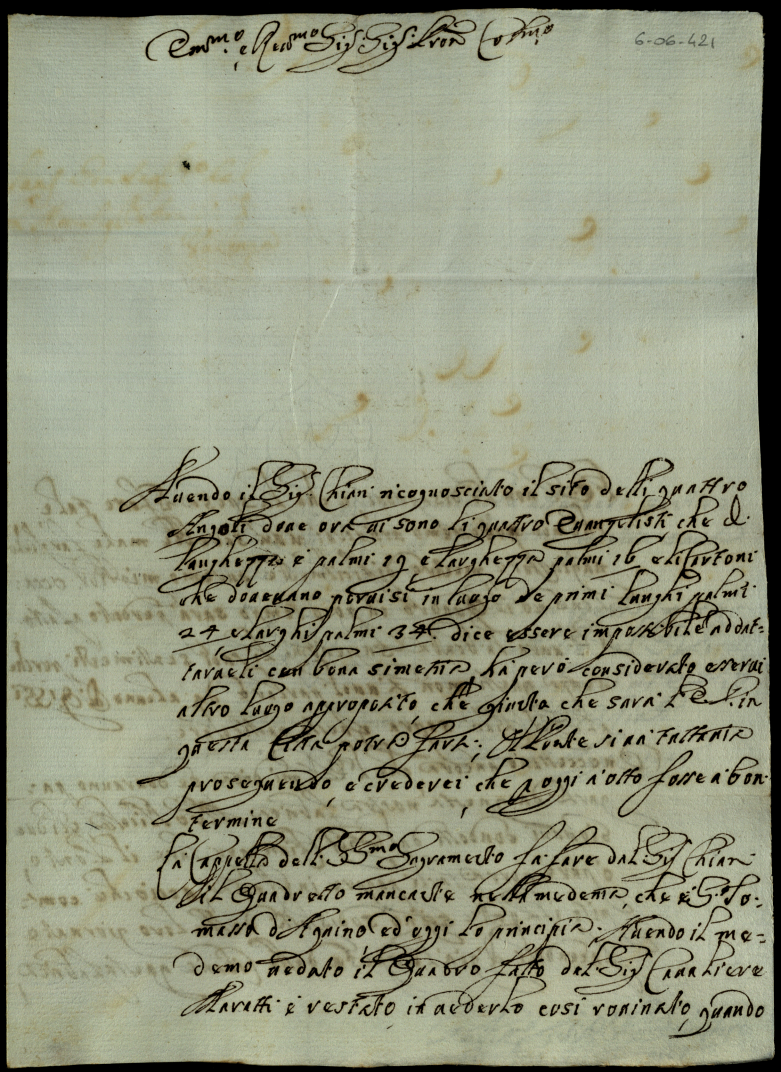 Em.mo e Reu.mo Sig.r Sig.r Pron Col.mo
6-06-421
Auendo il Sig.r Chiari ricognosciato il sito delli quattro
Angoli doue ora ui sono li quattro Euangelisti che di
lungheza è palmi 19 e largheza palmi 16 e li Cartoni
che doueuano poruisi in luogo de primi lunghi palmi
24 e larghi palmi 34. dice essere impossibile addat-
tarueli con bona simetria, hà però considerato esserui
altro luogo approposito, che giunta che sarà l'E. V. in
questa Città potrà farà; Al Ponte si uà tuttauia
proseguendo, e crederei che p oggi à otto fosse à bon
termine
La Cappella dell. SS.mo Sagramento fà fare dal Sig.r Chiari
il Quadretto mancante nella medema, che è S. To-
masso d'Aquino ed'oggi lo principia. Auendo il me-
demo ueduto il Quadro fatto dal Sig.r Caualiere
Maratti è restato in uederlo così rouinato, quando